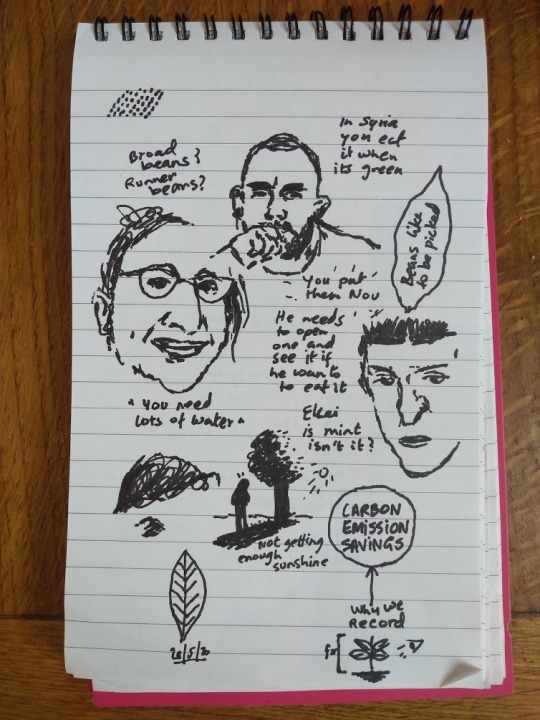 In Syria
you eat
it when
its green
Broad
beans?
Runner
beans?
Beans like
to be picked
You put
them Nov
He needs
to open
one and
see it if
he wants
to eat it
"You need
lots of water"
is mint
isn't it?
Not getting
enough
sunshine
CARBON
EMISSION
SAVINGS
Why we
Record